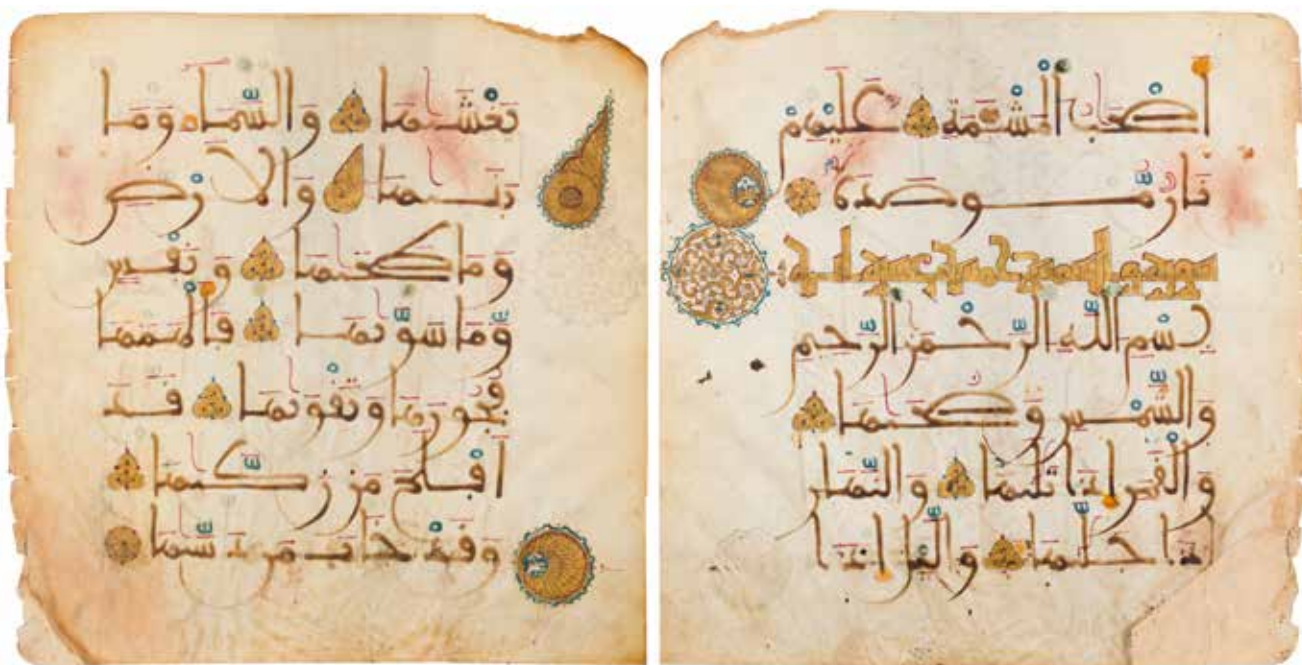 أصحب المشئمة عليهم
نار موصدة
سورة والشمس
بسم الله الرحمن الرحيم
والشمس وضحيها
والقمر اذا تليها والنهار
اذا جليها واليل اذا
يغشيها والسماء وما
بنيها والارض
وما طحيها ونفس
وما سويها فالهمها
فجورها وتقويها قد
افلح من زكيها
وقد خاب من دسيها